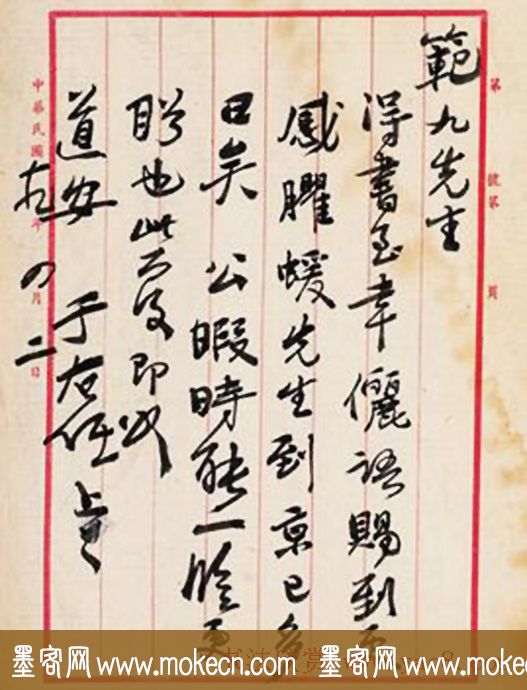 範九先生
得書至幸儷語賜到至
感臞蝯先生到京已多
日矣 公暇時能一臨更
盼也此復即頌
道安 于右任 上
中華民國 年 四月二日
第 號第 頁
墨客网 www.mokecn.com 墨客网 www.mokecn.com